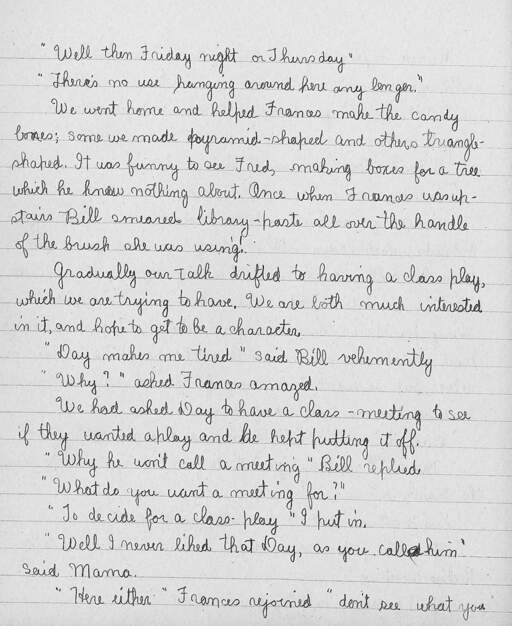 "Well then Friday night or Thursday"
"There's no use hanging around here any longer."
We went home and helped Frances make the candy
boxes; some we made pyramid-shaped and others triangle-
shaped. It was funny to see Fred, making boxes for a tree
which he knew nothing about. Once when Frances was up-
stairs Bill smeared library-paste all over the handle
of the brush she was using!
Gradually our talk drifted to having a class play,
which we are trying to have. We are both much interested
in it, and hope to get to be a character.
"Day makes me tired" said Bill vehemently
"Why?" asked Frances amazed.
We had asked Day to have a class-meeting to see
if they wanted a play and he kept putting it off.
"Why he won't call a meeting" Bill replied
"What do you want a meeting for?"
"To decide for a class-play" I put in.
"Well I never liked that Day, as you call him"
said Mama.
"Here either" Frances rejoined "don't see what you